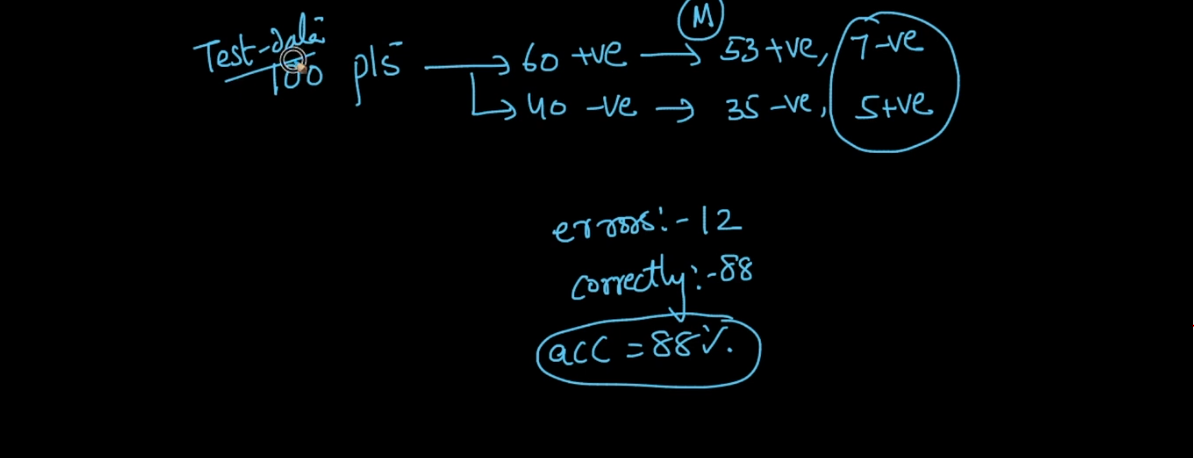 M
Test-data
100 pts → 60 +ve → 53 +ve, 7 -ve
↳ 40 -ve → 35 -ve, 5 +ve
errors:- 12
correctly:- 88
acc = 88%.